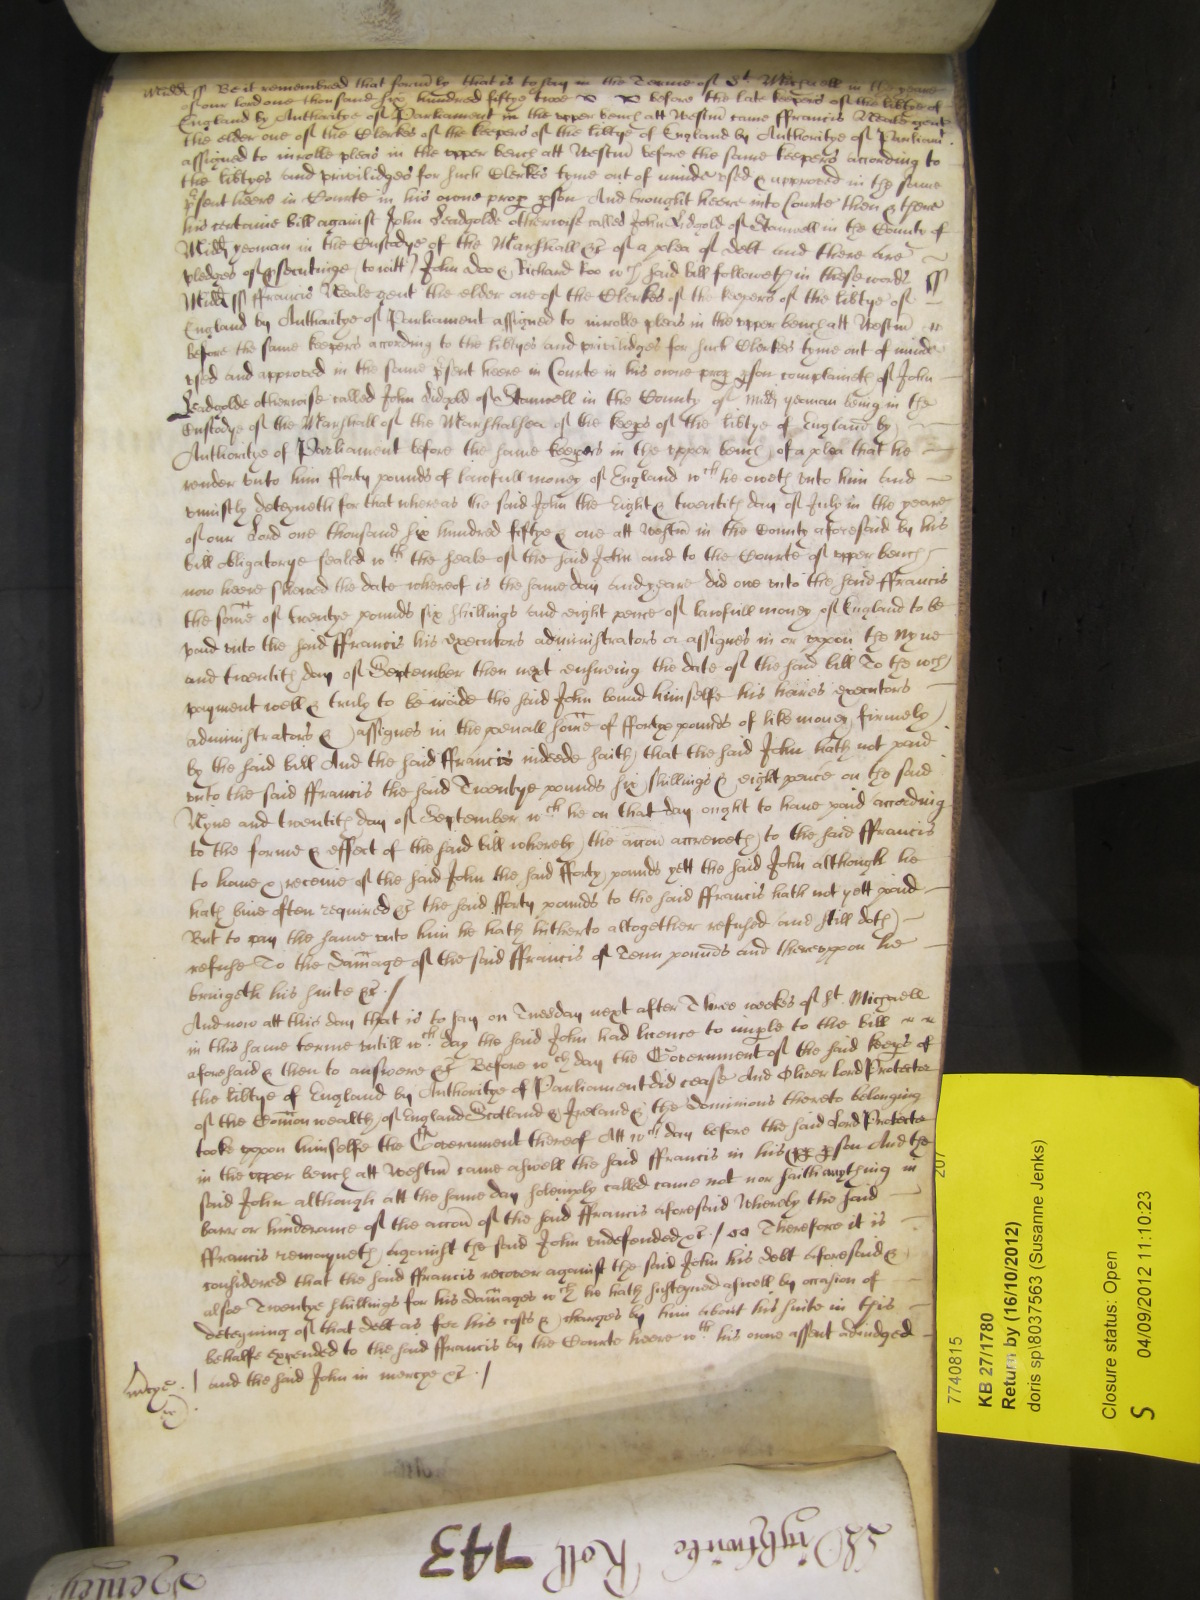 Midd ss Be it remembred that form͠ly that is to say in the Terme of St. Michaell in the yeare
of our lord one thousand six hundred fiftye twoe before the late keepers of the libtye of
England by Authoritye of Parliament in the upper bench att Westm̃ came ffrancis Neale gent
the elder one of the Clerkes of the keepers of the libtye of England by Authoritye of Parliam̃t
assigned to inrolle pleas in the upper bench att Westm̃ before the same keepers according to
the libtyes and priviledges for such Clerkes tyme out of minde used & approved in the same
p̃sent heere in Courte in his owne prop p̲son And brought heere into Courte then & there
his certaine bill against John Leadgolde otherwise called John Lidgold of Stanwell in the County of
Midd yeoman in the Custodye of the Marshall &c of a plea of debt And there are
pledges of p̲secutinge, to witt, John Doo & Richard Roo wch said bill followeth in these words ss
Midd ss ffrancis Neale gent the elder one of the Clerkes of the keepers of the libtye of
England by Authoritye of Parliament assigned to inrolle pleas in the upper bench att Westm̃
before the same keepers according to the libtyes and priviledges for such Clerkes tyme out of minde
used and approved in the same p̃sent heere in Courte in his owne prop p̲son complaineth of John
Leadgolde otherwise called John Lidgold of Stanwell in the County of Midd yeoman being in the
Custodye of the Marshall of the Marshalsea of the keep̲s of the libtye of England by
Authoritye of Parliament before the same keepers in the upper bench, of a plea that he
render unto him fforty pounds of lawfull money of England wch he oweth unto him and
uniustly deteyneth for that whereas the said John the Eight & twentith day of July in the yeare
of our Lord one thousand six hundred fiftye & one att Westm̃ in the County aforesaid by his
bill obligatorye sealed wth the seale of the said John and to the Courte of upper bench
now heere shewed the date whereof is the same day and yeare did owe unto the said ffrancis
the som̃e of twentye pounds six shillings and eight pence of lawfull money of England to be
paid unto the said ffrancis his executors administrators or assignes in or uppon the Nyne
and twentith day of September then next ensueing the date of the said bill To the wch
payment well & truly to be made the said John bound himselfe his heires executors
administrators & assignes in the penall som̃e of ffortye pounds of like money, firmely
by the said bill And the said ffrancis indeede saith that the said John hath not paid
unto the said ffrancis the said Twentye pounds six shillings & eight pence on the said
Nyne and twentith day of September wch he on that day ought to have paid according
to the forme & effect of the said bill whereby the accon̄ accreweth to the said ffrancis
to have & receive of the said John the said fforty pounds yett the said John although he
hath bine often required &c the said fforty pounds to the said ffrancis hath not yett paid
But to pay the same unto him he hath hitherto altogether refused and still doth
refuse To the dam̃age of the said ffrancis of Tenn pounds and thereuppon he
bringeth his suite &c. /
And now att this day that is to say on Tuesday next after Three weekes of St. Michaell
in this same terme untill wch day the said John had licence to imple to the bill
aforesaid & then to answere &c Before wch day the Government of the said keep̲s of
the libtye of England by Authoritye of Parliament did cease And Oliver Lord Protector
of the Com̃onwealth of England Scotland & Ireland & the dominions thereto belonging
tooke uppon himselfe the Government thereof Att wch day before the said Lord Protector
in the upper bench att Westm̃ came aswell the said ffrancis in his prop p̲son And the
said John although att the same day solemply called came not nor saith anything in
barr or hinderance of the accon̄ of the said ffrancis aforesaid Whereby the said
ffrancis remayneth against the said John undefended &c. / Therefore it is
considered that the said ffrancis recover against the said John his debt aforesaid &
alsoe Twentye shillings for his dam̃ages wch he hath susteyned aswell by occasion of
deteyning of that debt as for his costs & charges by him about his suite in this
behalfe expended to the said ffrancis by the Courte heere wth his owne assent adiudged
and the said John in mercye &c. /
mercye
Wightwicke Roll 743
Henley
207
7740815
KB 27/1780
Return by (16/10/2012)
doris sp\8037563 (Susanne Jenks)
Closure status: Open
S 04/09/2012 11:10:23